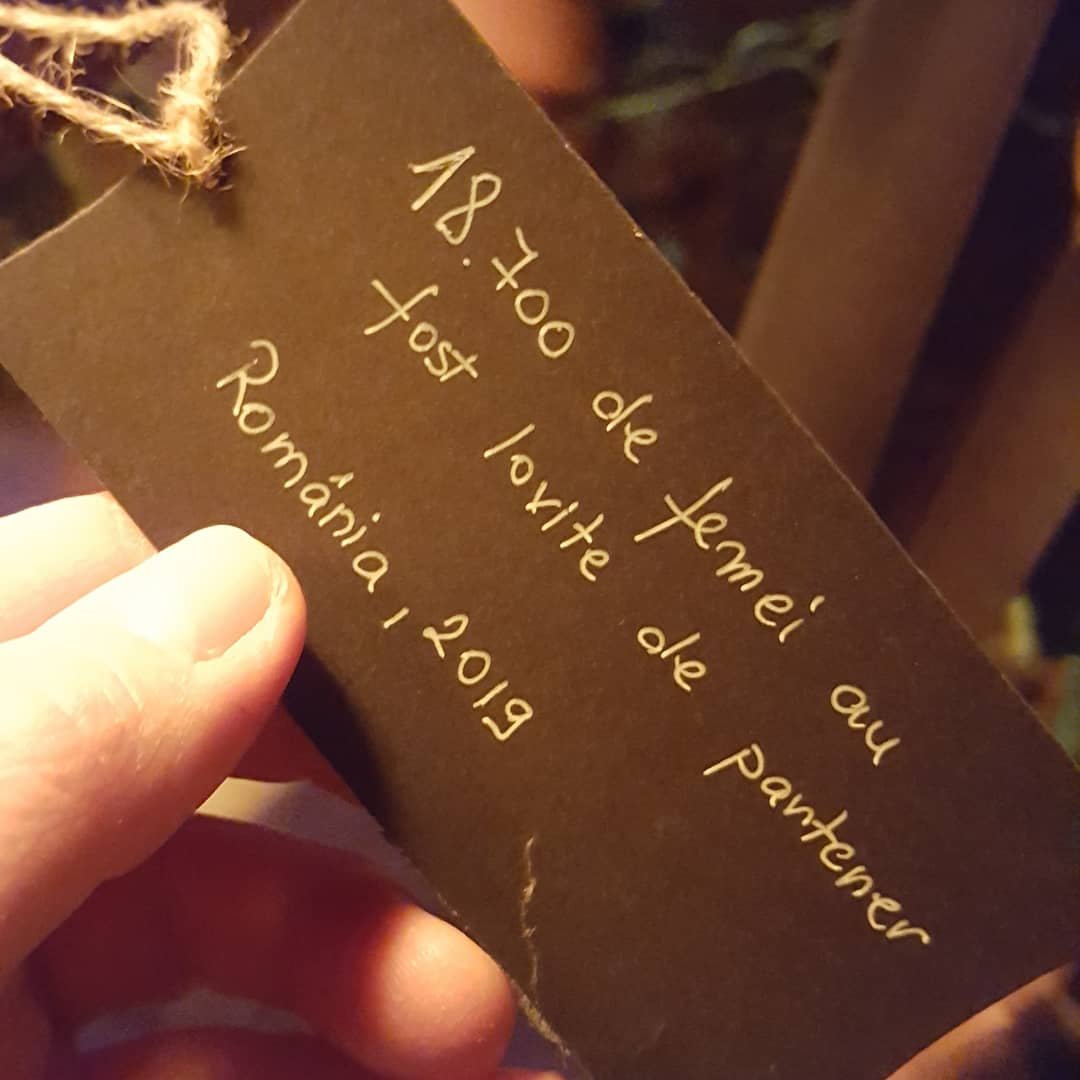 18.700 de femei au
fost lovite de partener
România, 2019